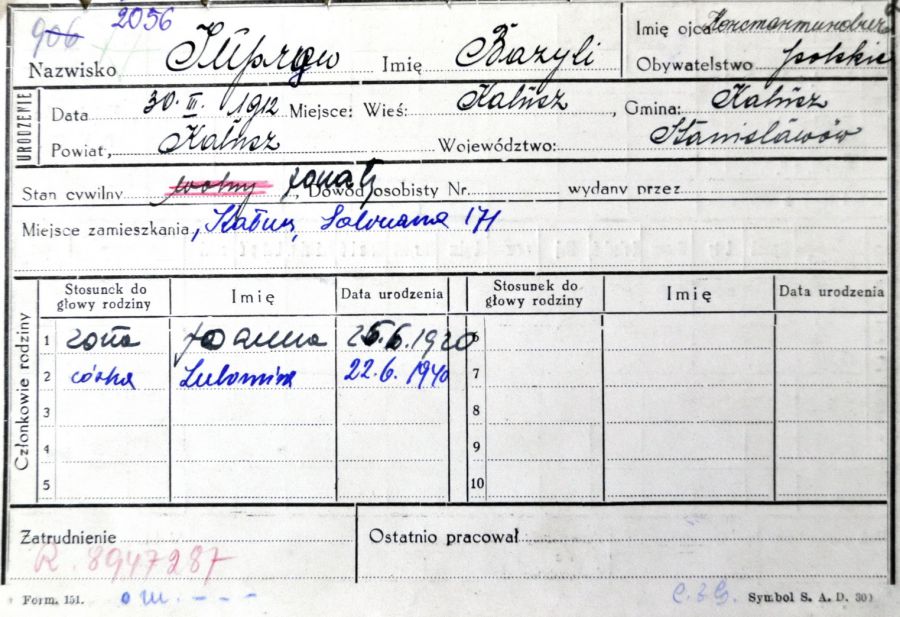 906 2056
Nazwisko Imię Bazyli Imię ojca
Obywatelstwo polskie
URODZENIE
Data 30. III. 1912 Miejsce: Wieś: Kałusz, Gmina: Kałusz
Powiat, Kałusz Województwo: Stanisławów
Stan cywilny wolny żonaty, Dowód osobisty Nr. wydany przez
Miejsce zamieszkania, Kałusz, 171
Członkowie rodziny
Stosunek do głowy rodziny Imię Data urodzenia Stosunek do głowy rodziny Imię Data urodzenia
1 żona Joanna 25.6.1920 6
2 córka Lubomira 22.6.1940 7
3 8
4 9
5 10
Zatrudnienie Ostatnio pracował
R. 8947287
Form. 151. Symbol S. A. D. 30